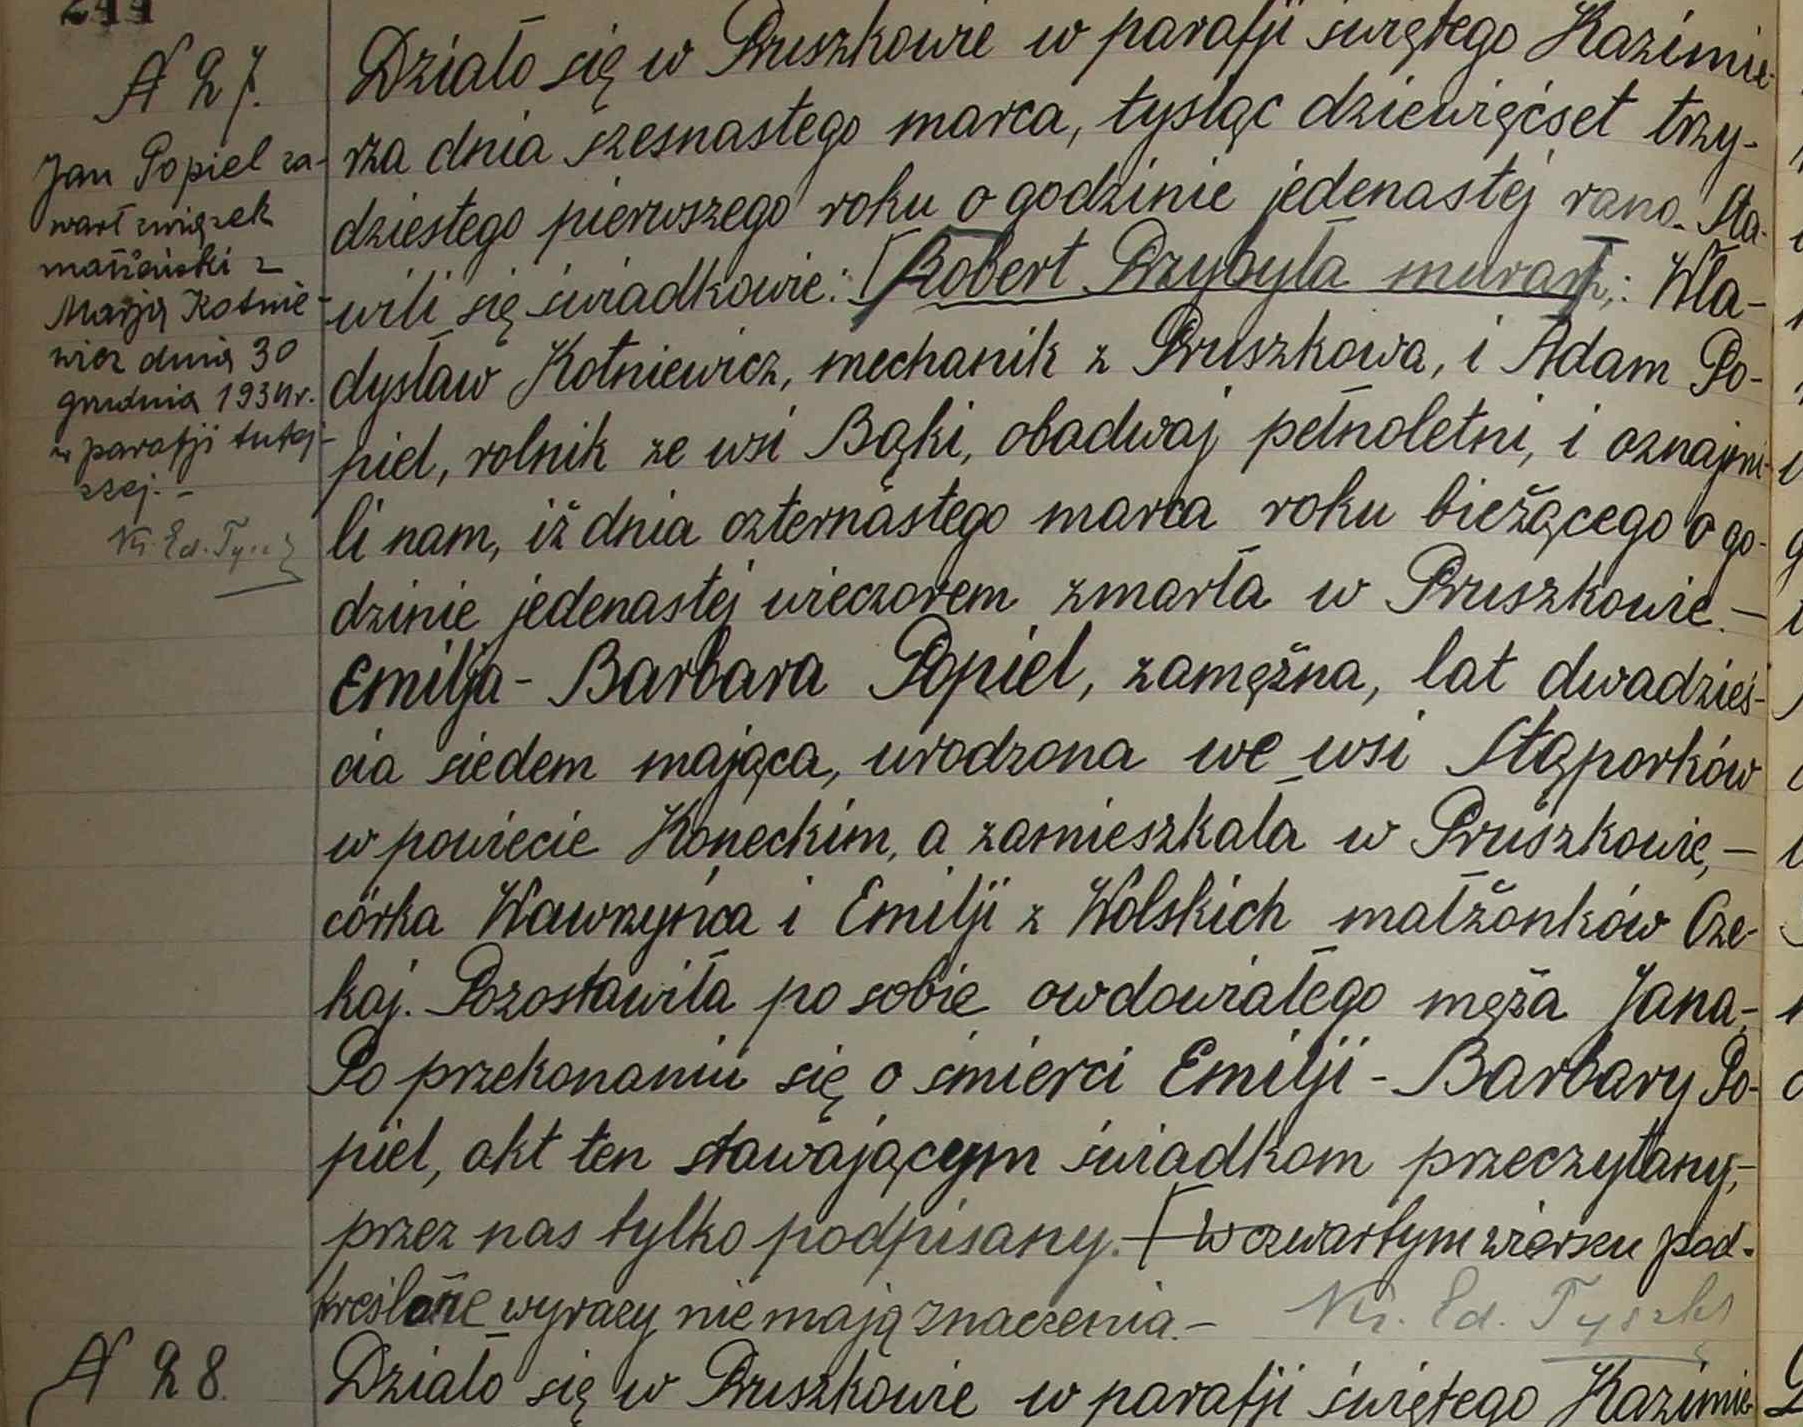 244
N 27.
Jan Popiel za-
warł związek
małżeński z
Marją Kotnie-
wicz dnia 30
grudnia 1934 r.
w parafji tutej-
szej. -
Ks. Ed. Tysz
Działo się w Pruszkowie w parafji świętego Kazimie-
rza dnia szesnastego marca, tysiąc dziewięćset trzy-
dziestego pierwszego roku o godzinie jedenastej rano. Sta-
wili się świadkowie: [Robert Przybyła murarz,: Wła-
dysław Kotniewicz, mechanik z Pruszkowa, i Adam Po-
piel, rolnik ze wsi Bąki, obadwaj pełnoletni, i oznajmi-
li nam, iż dnia czternastego marca roku bieżącego o go-
dzinie jedenastej wieczorem zmarła w Pruszkowie. —
Emilja - Barbara Popiel, zamężna, lat dwadzieś-
cia siedem mająca, urodzona we wsi Stąporków
w powiecie Koneckim, a zamieszkała w Pruszkowie, —
córka Wawrzyńca i Emilji z Wolskich małżonków Cze-
kaj. Pozostawiła po sobie owdowiałego męża Jana,-
Po przekonaniu się o śmierci Emilji - Barbary Po-
piel, akt ten stawającym świadkom przeczytany,-
przez nas tylko podpisany. - [W czwartym wierszu pod-
kreślone wyrazy nie mają znaczenia. - Ks. Ed. Tyszka
N 28. Działo się w Pruszkowie w parafji świętego Kazimie-